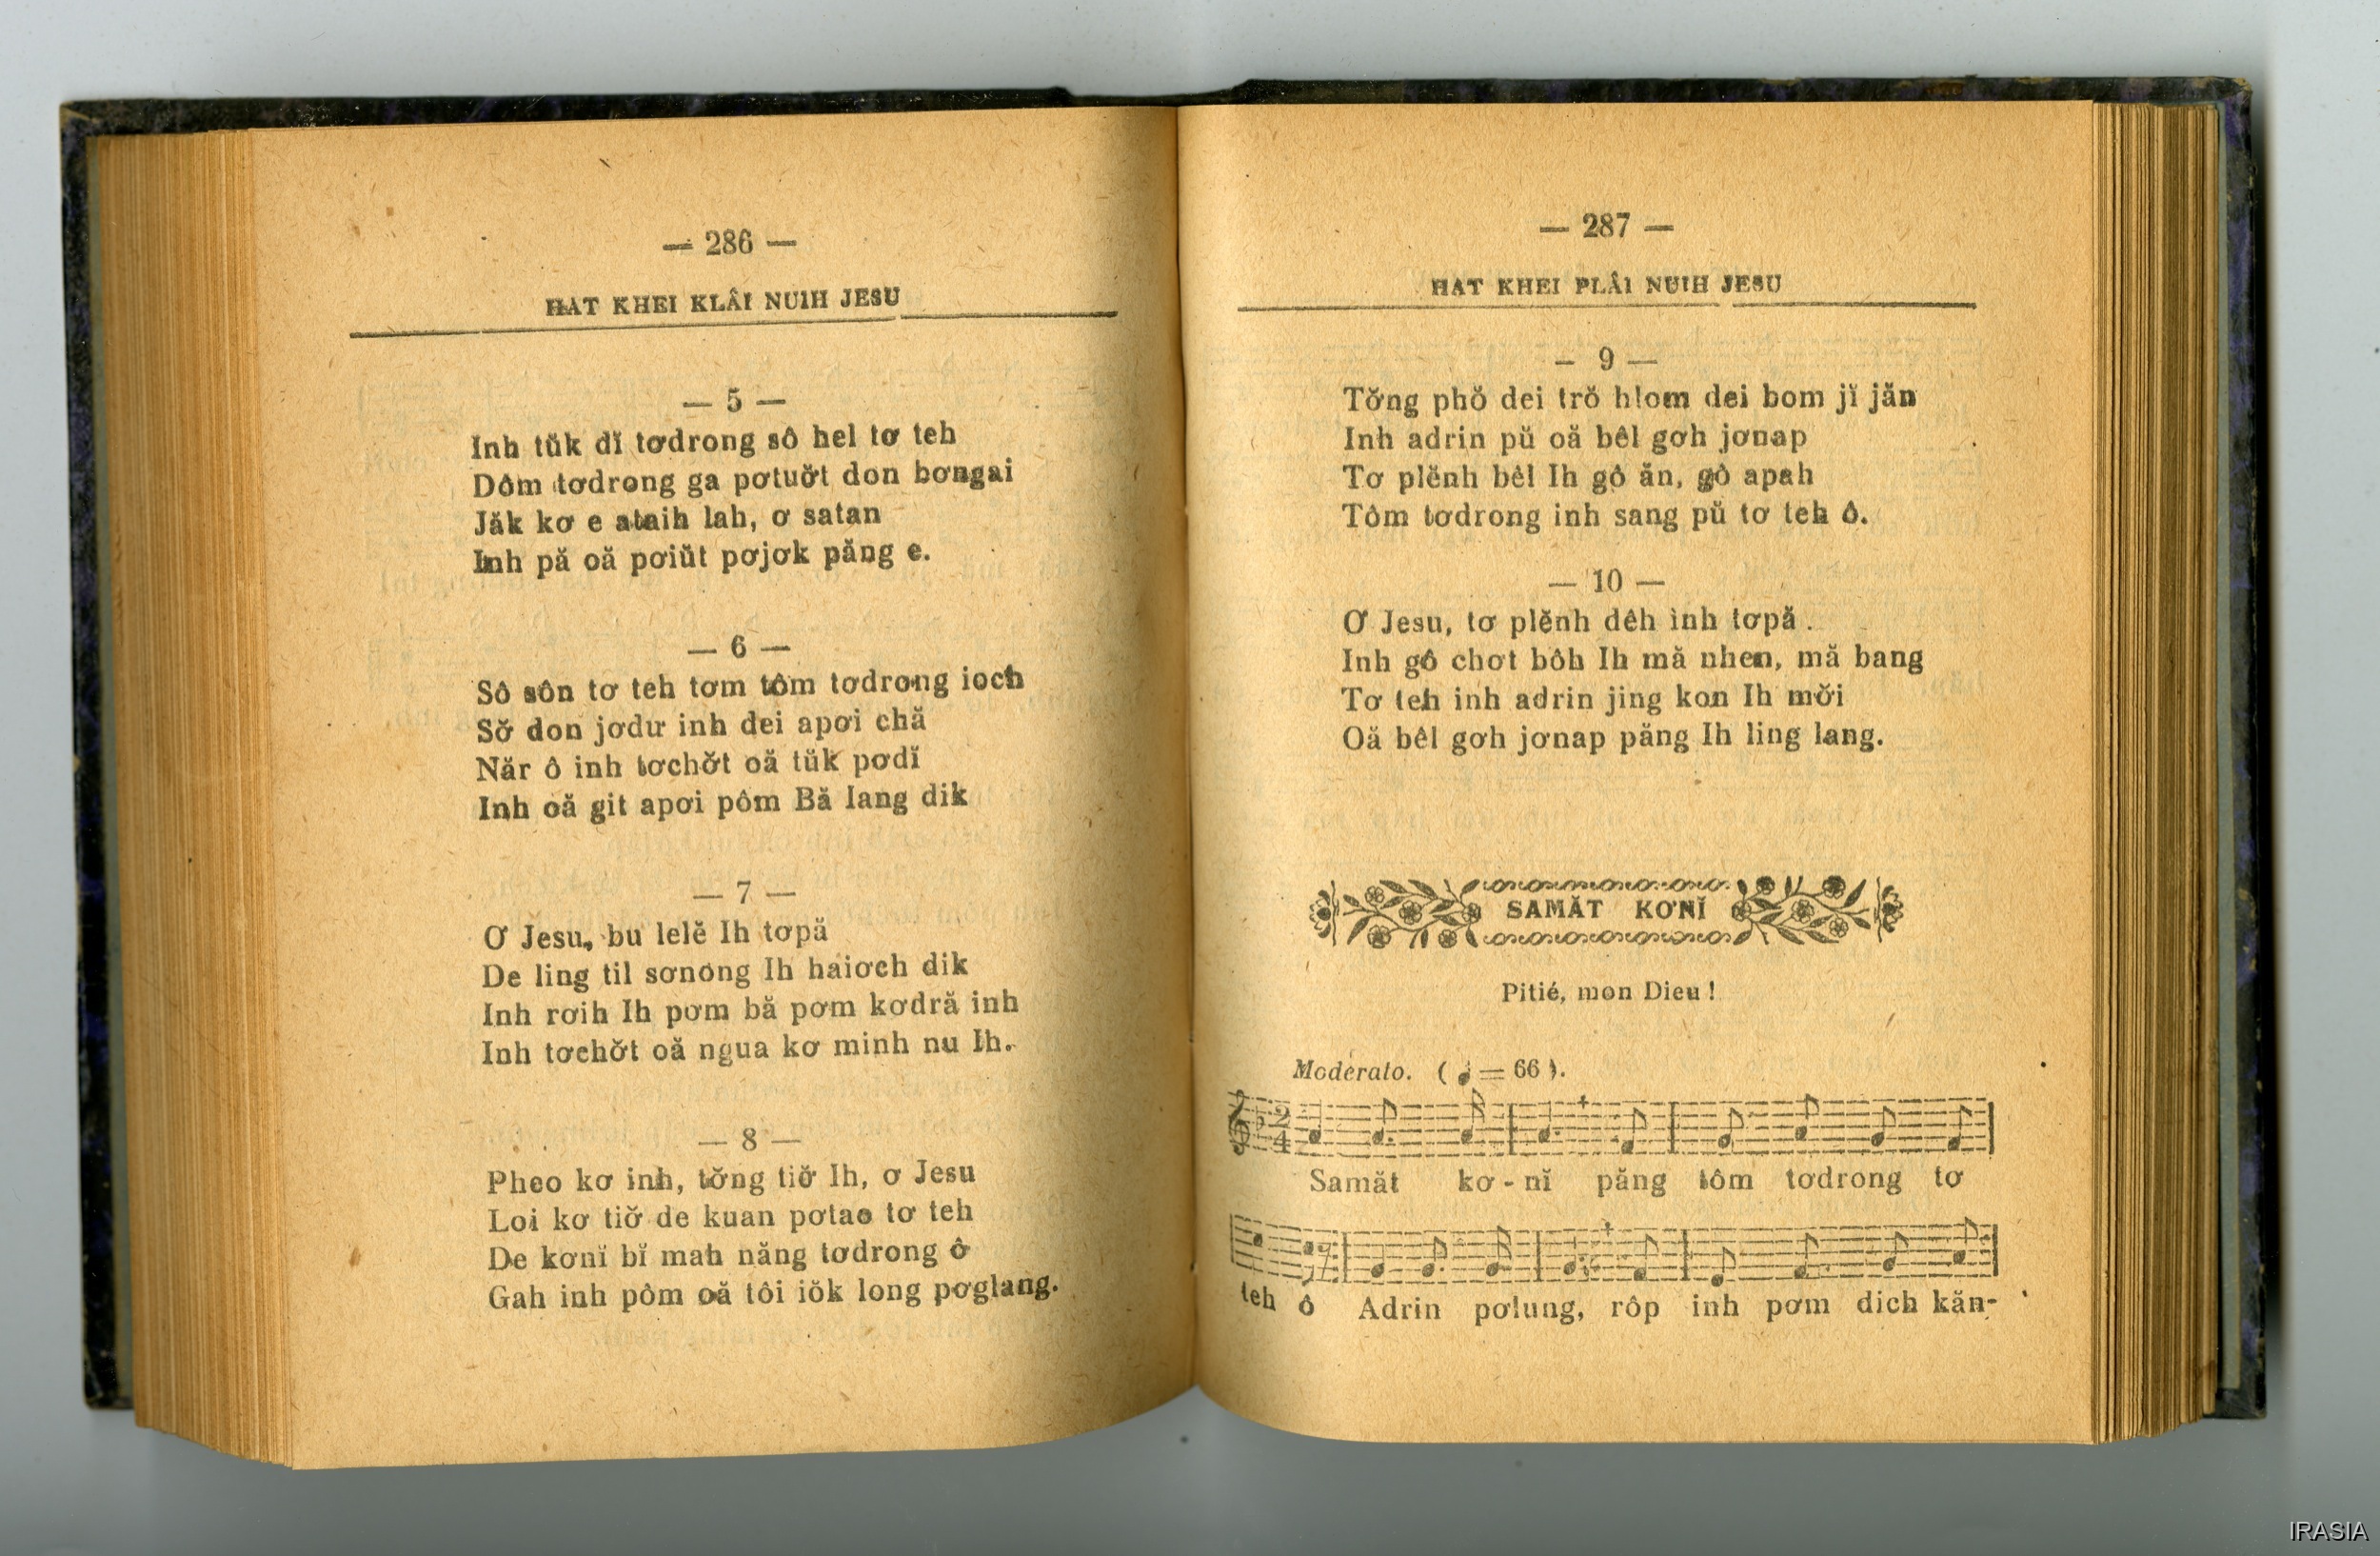 — 286 —
HAT KHEI KLÂI NUIH JESU
— 5 —
Inh tŭk dĭ tơdrong sô hel tơ teh
Dôm tơdrong ga pơtuơ̆t don bơngai
Jăk kơ e ataih lah, ơ satan
Inh pă oă pơiŭt pơjơk păng e.
— 6 —
Sô sôn tơ teh tơm tôm tơdrong ioch
Sơ̆ don jơdư inh dei apơi chă
Năr ô inh tơchơ̆t oă tŭk pơdĭ
Inh oă git apơi pôm Bă Iang dik
— 7 —
Ơ Jesu, bu lelĕ Ih tơpă
De ling til sơnong Ih haiơch dik
Inh rơih Ih pơm bă pơm kơdră inh
Inh tơchơ̆t oă ngua kơ minh nu Ih.
— 8 —
Pheo kơ inh, tơ̆ng tiơ̆ Ih, ơ Jesu
Loi kơ tiơ̆ de kuan pơtao tơ teh
De kơnĭ bĭ mah năng tơdrong ô
Gah inh pôm oă tôi iŏk long pơglang.
— 287 —
HAT KHEI PLÂI NUIH JESU
— 9 —
Tơ̆ng phŏ dei trŏ hlom dei bom jĭ jăn
Inh adrin pŭ oă bêl gơh jơnap
Tơ plĕnh bêl Ih gô ăn, gô apah
Tôm tơdrong inh sang pŭ tơ teh ô.
— 10 —
Ơ Jesu, tơ plĕnh dêh inh tơpă.
Inh gô chơt bôh Ih mă nhen, mă bang
Tơ teh inh adrin jing kon Ih mơ̆i
Oă bêl gơh jơnap păng Ih ling lang.
SAMĂT KƠNĬ
Pitié, mon Dieu !
Modérato. (♩ = 66).
2
4
Samăt kơ - nĭ păng tôm tơdrong tơ
teh ô Adrin pơlung, rôp inh pơm dich kăn-
IRASIA